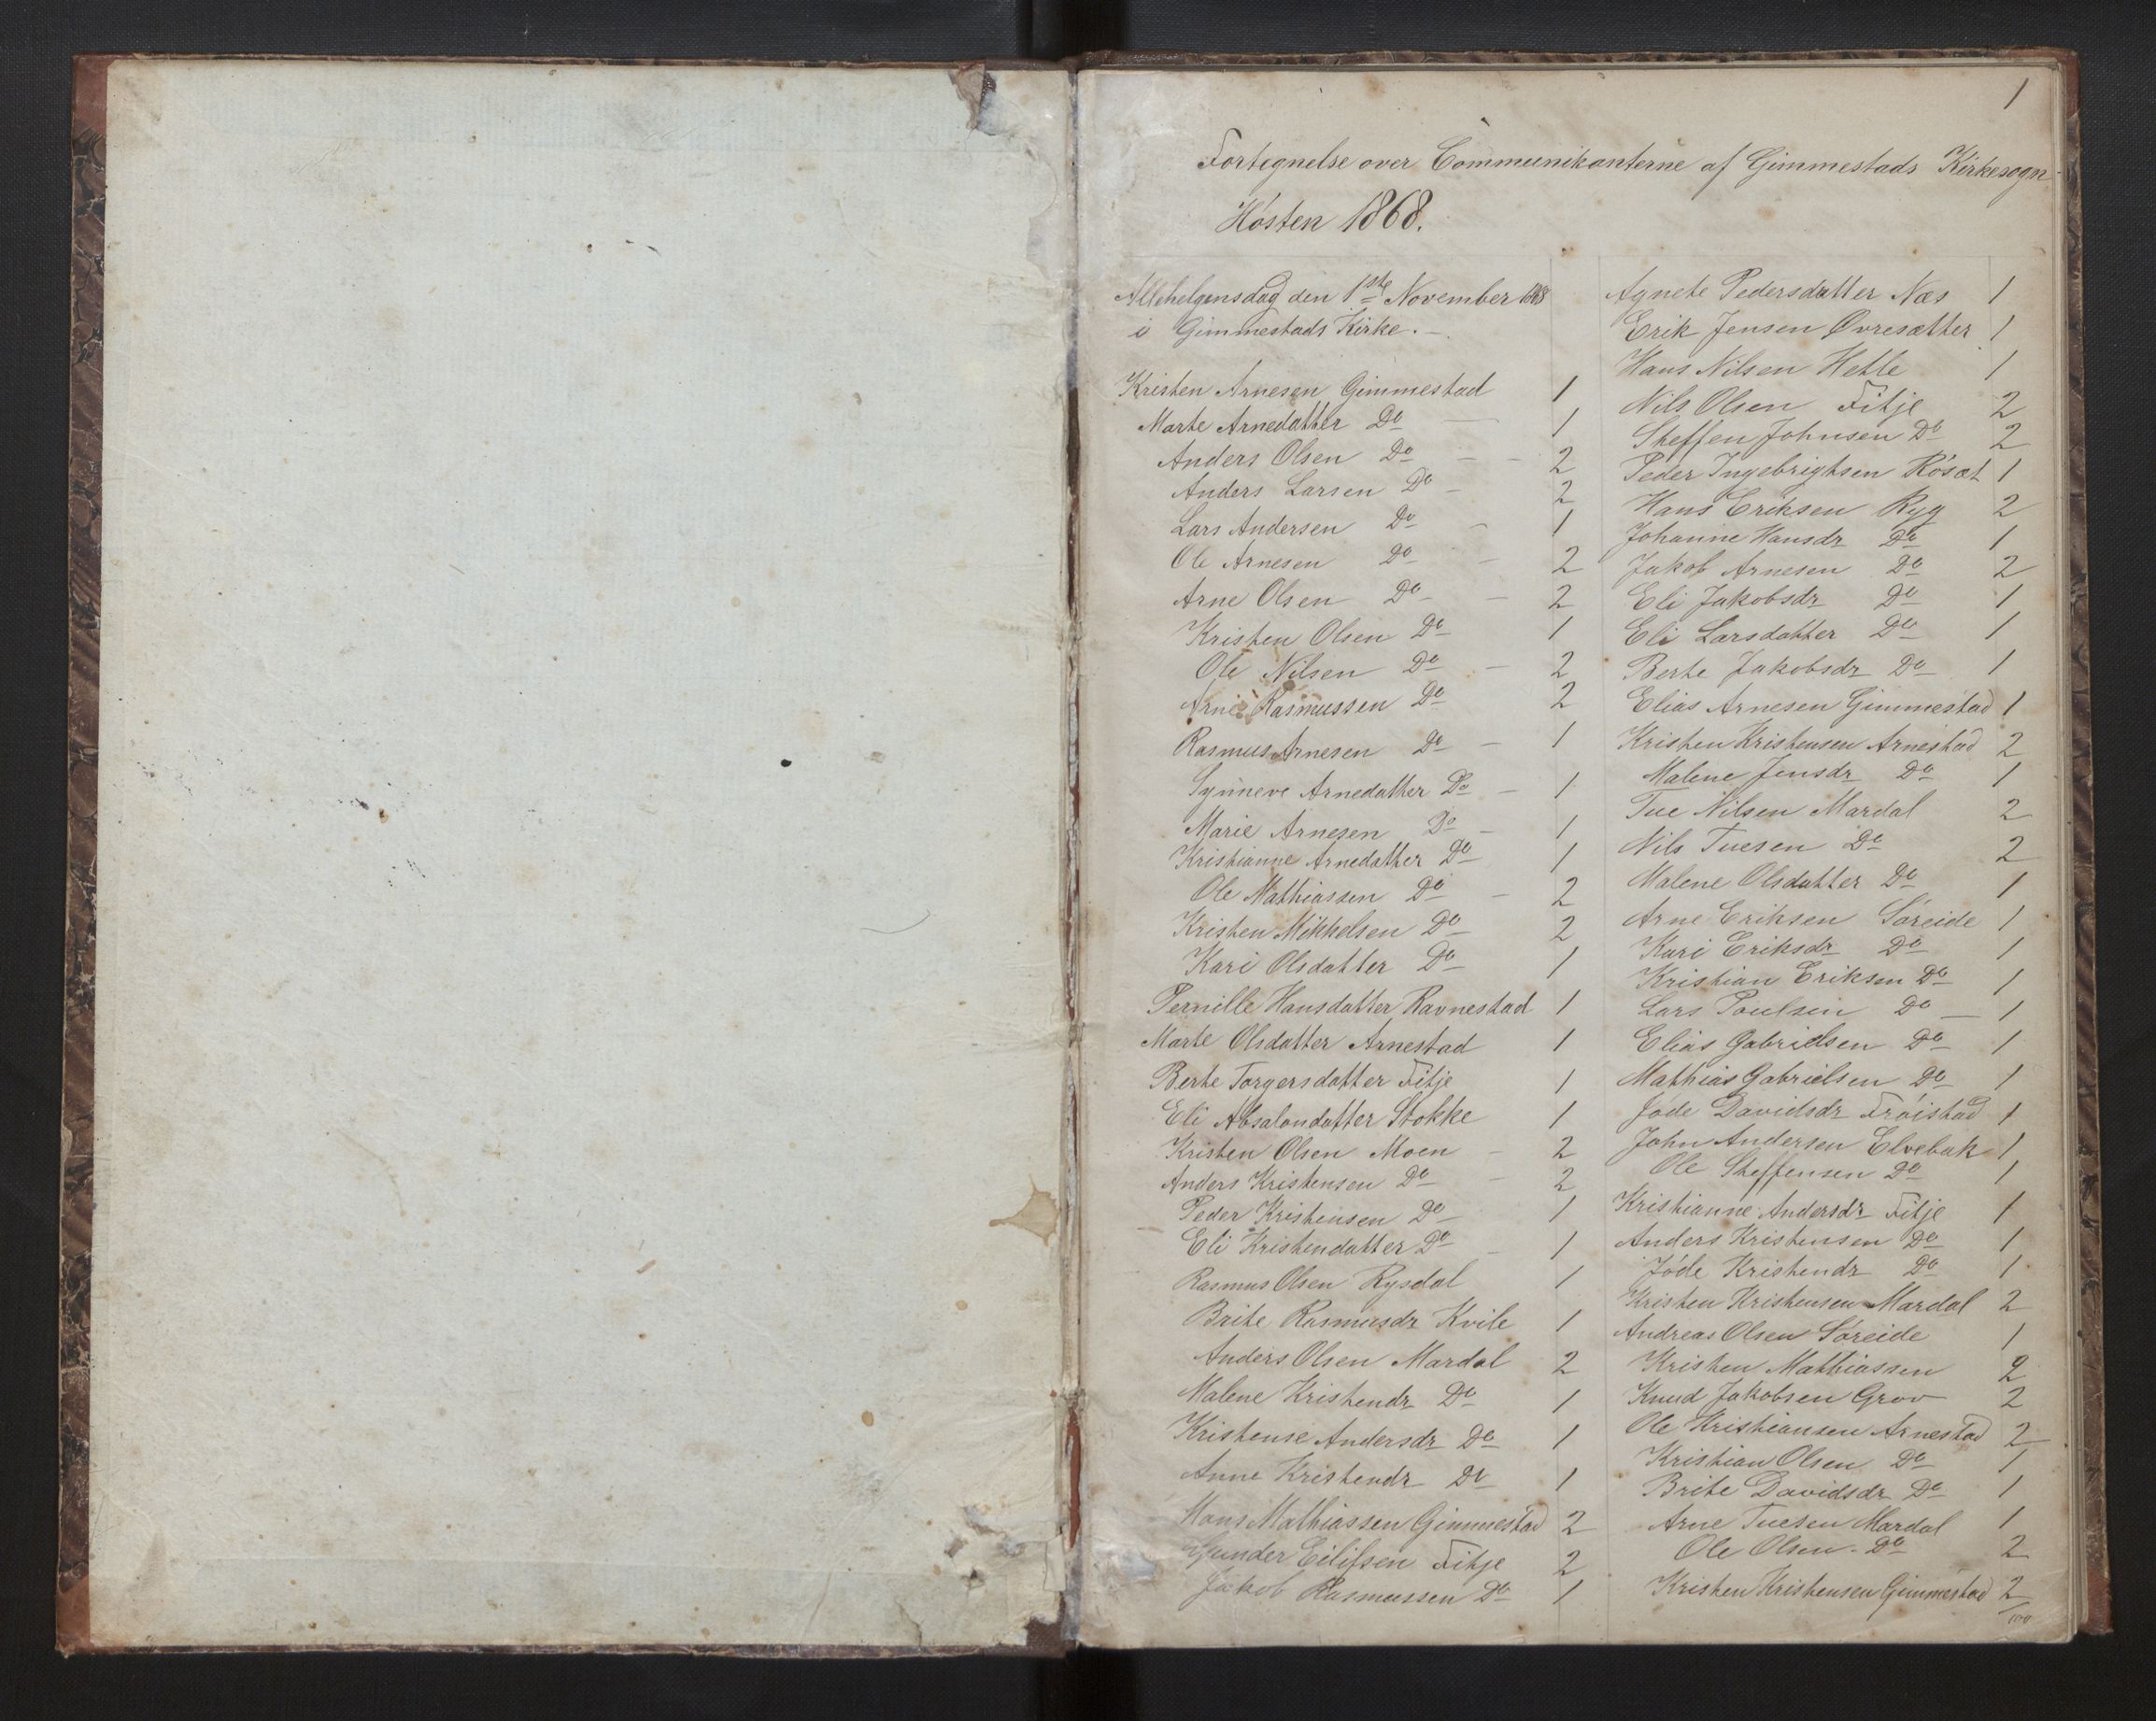 1
Fortegnelse over Communikanterne af Gimmestads Kirkesogn
Hösten 1868.
Allehelgensdag den 1ste November 1868
i Gimmestads Kirke.
Kristen Arnesen Gimmestad 1
Marte Arnedatter Do 1
Anders Olsen Do 2
Anders Larsen Do 2
Lars Andersen Do 1
Ole Arnesen Do 2
Arne Olsen Do 2
Kristen Olsen Do 1
Ole Nilsen Do 2
Arne Rasmussen Do 2
Rasmus Arnesen Do 1
Synneve Arnedatter Do 1
Marie Arnesen Do 1
Kristianne Arnedatter Do 1
Ole Mathiassen Do 2
Kristen Mikkelsen Do 2
Kari Olsdatter Do 1
Pernille Hansdatter Ravnestad 1
Marte Olsdatter Arnestad 1
Berte Torgersdatter Fitje 1
Eli Absalondatter Stokke 1
Kristen Olsen Moen 2
Anders Kristensen Do 2
Peder Kristensen Do 1
Eli Kristendatter Do 1
Rasmus Olsen Rysdal 1
Brite Rasmusdr Kvile 1
Anders Olsen Mardal 2
Malene Kristendr Do 1
Kristense Andersdr Do 1
Anne Kristendr Do 1
Hans Mathiassen Gimmestad 2
Gunder Eilifsen Fitje 2
Jakob Rasmussen Do 1
Agnete Pedersdatter Næs 1
Erik Jensen Øvresætter 1
Hans Nilsen Hetle 1
Nils Olsen Fitje 2
Steffen Johnsen Do 2
Peder Ingebrigtsen Rösæt 1
Hans Eriksen Ryg 2
Johanne Hansdr Do 1
Jakob Arnesen Do 2
Eli Jakobsdr Do 1
Eli Larsdatter Do 1
Berte Jakobsdr Do 1
Elias Arnesen Gimmestad 1
Kristen Kristensen Arnestad 2
Malene Jensdr Do 1
Tue Nilsen Mardal 2
Nils Tuesen Do 2
Malene Olsdatter Do 1
Arne Eriksen Söreide 1
Kari Eriksdr Do 1
Kristian Eriksen Do 1
Lars Poulsen Do 1
Elias Gabrielsen Do 1
Mathias Gabrielsen Do 1
Jöde Davidsdr Fröistad 1
John Andersen Elvebak 1
Ole Steffensen Do 1
Kristianne Andersdr Fitje 1
Anders Kristensen Do 1
Jöde Kristendr Do 1
Kristen Kristensen Mardal 2
Andreas Olsen Söreide 1
Kristen Mathiassen 2
Knud Jakobsen Grov 2
Ole Kristiansen Arnestad 2
Kristian Olsen Do 1
Brite Davidsdr Do 1
Arne Tuesen Mardal 1
Ole Olsen Do 2
Kristen Kristensen Gimmestad 2